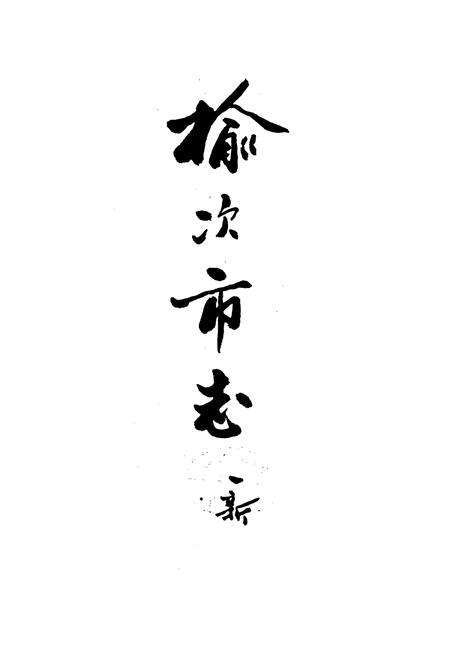 榆次市志
新